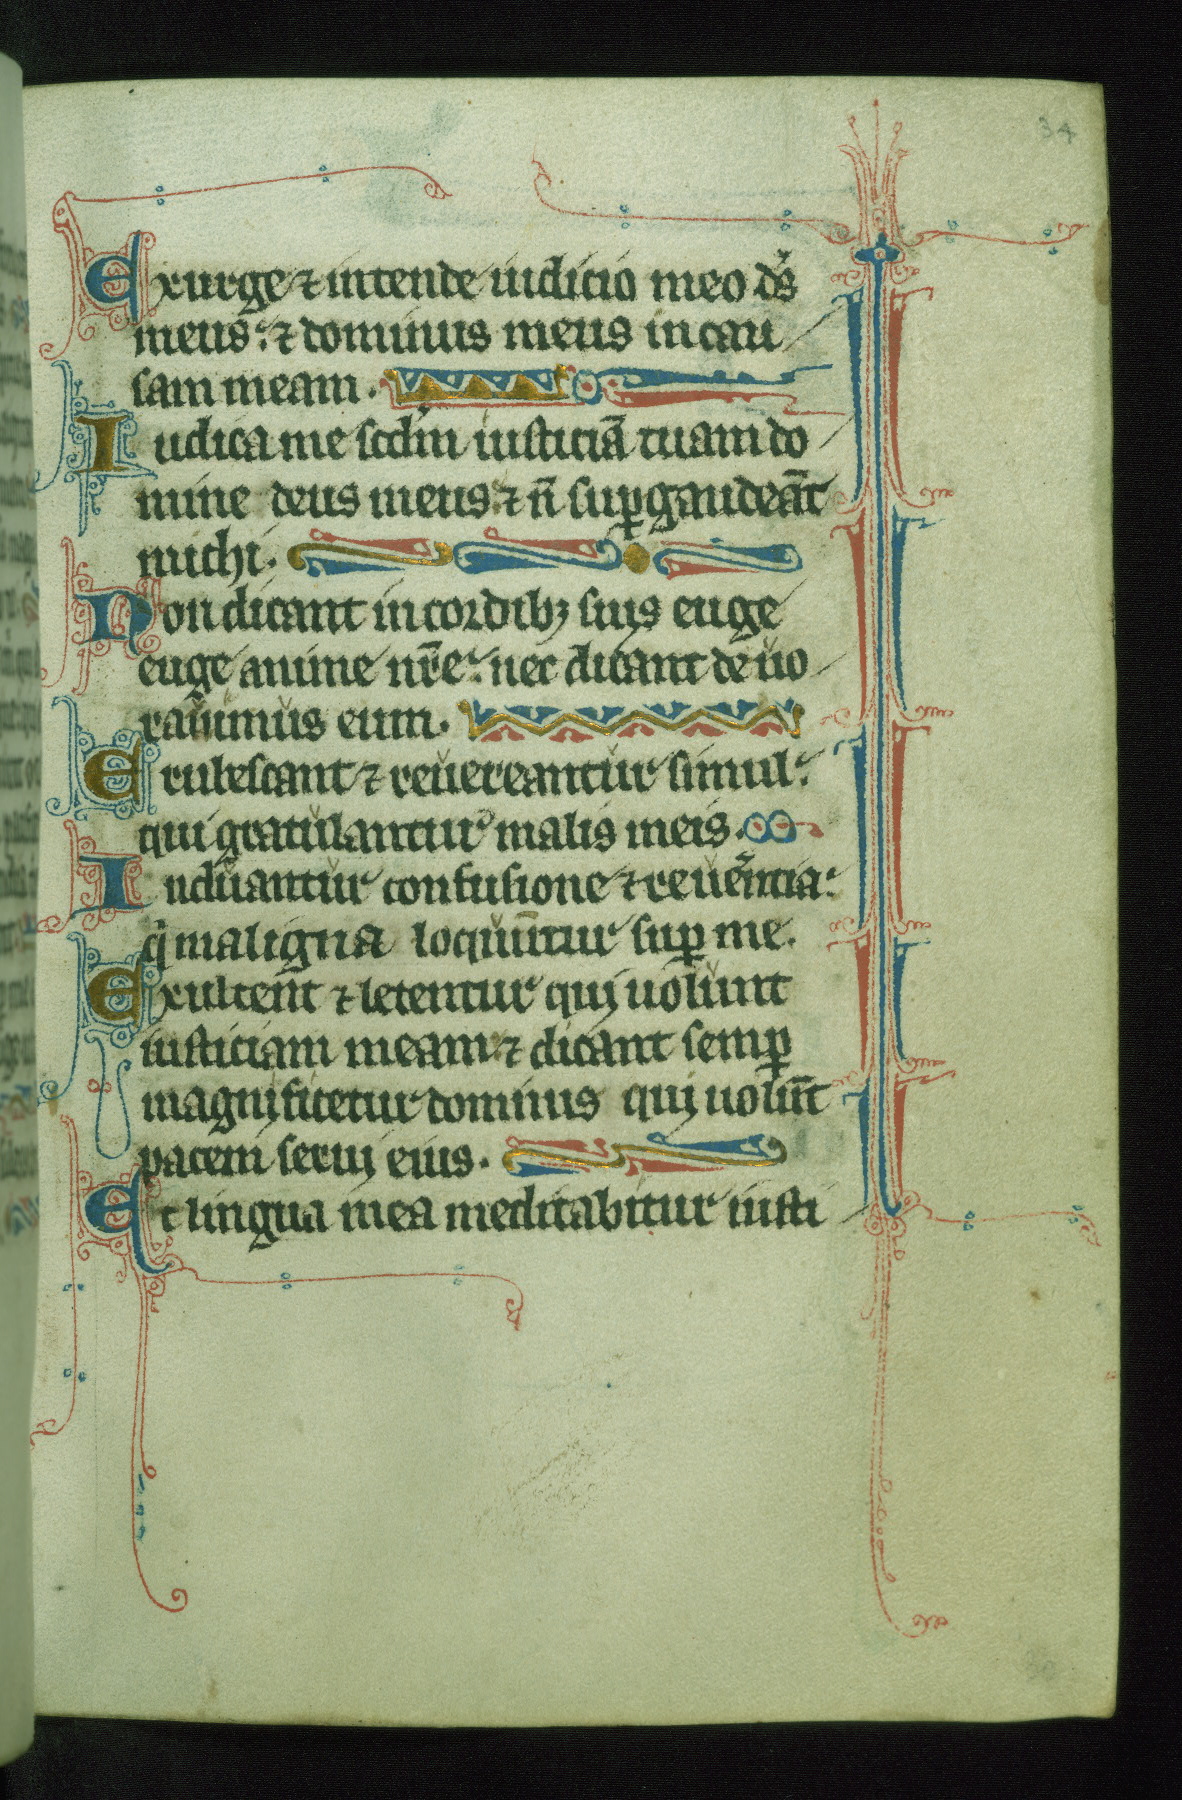 34
Exurge ⁊ intende iudicio meo ds̄
meus: ⁊ dominus meus in cau
sam meam.
Iudica me scdm̄ iusticiā tuam do
mine deus meus ⁊ n̄ suꝑgaudeāt
michi.
Non dicant in cordibꝫ suis euge
euge anime nr̄e: nec dicant deuo
rauimus eum.
Erubescant ⁊ reuereantur simul:
qui gratulantur malis meis.
Induantur confusione ⁊ reuerētia:
qi maligna loquūtur suꝑ me.
Exultent ⁊ letentur qui uolunt
iusticiam meam ⁊ dicant semꝑ
magnificetur dominus qui uolūt
pacem serui eius.
Et lingua mea meditabitur iusti